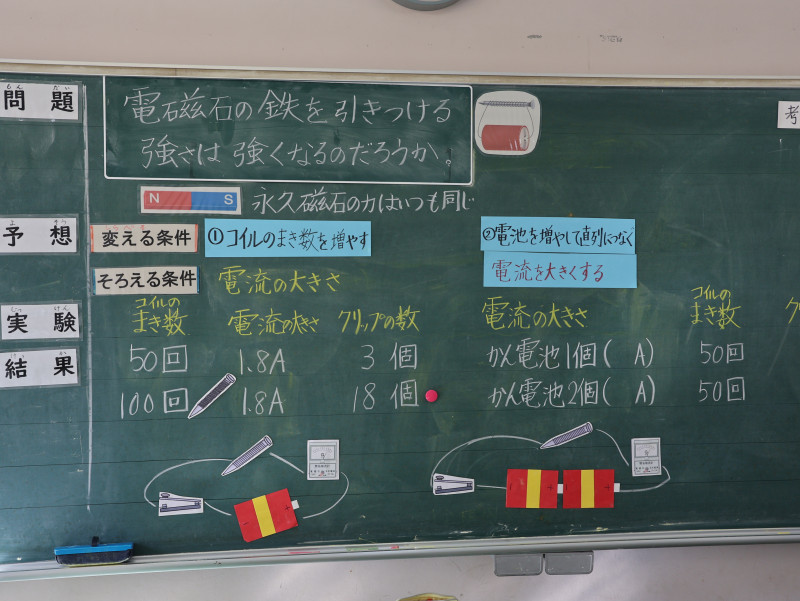 問題
もんだい
電磁石の鉄を引きつける
強さは強くなるのだろうか。
考
N S
永久磁石の力はいつも同じ
予想
よそう
変える条件
①コイルのまき数を増やす
②電池を増やして直列につなぐ
電流を大きくする
そろえる条件
電流の大きさ
実験
じっけん
コイルの
まき数
電流の大きさ
クリップの数
50回 1.8A 3個
100回 1.8A 18個
電流の大きさ
コイルの
まき数
ク
かん電池1個( A) 50回
かん電池2個( A) 50回
結果
けっか